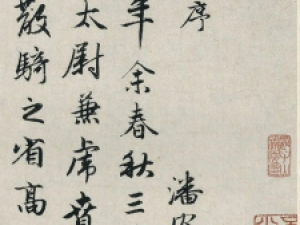 序 潘
年余春秋三
太尉兼虎賁
散騎之省高